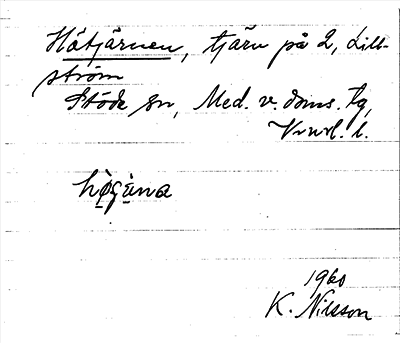 Hötjärnen, tjärn på 2, Lill-
ström
Stöde sn, Med. v. doms. tg,
Vnrl. l.
hø̀gàna
1960
K. Nilsson